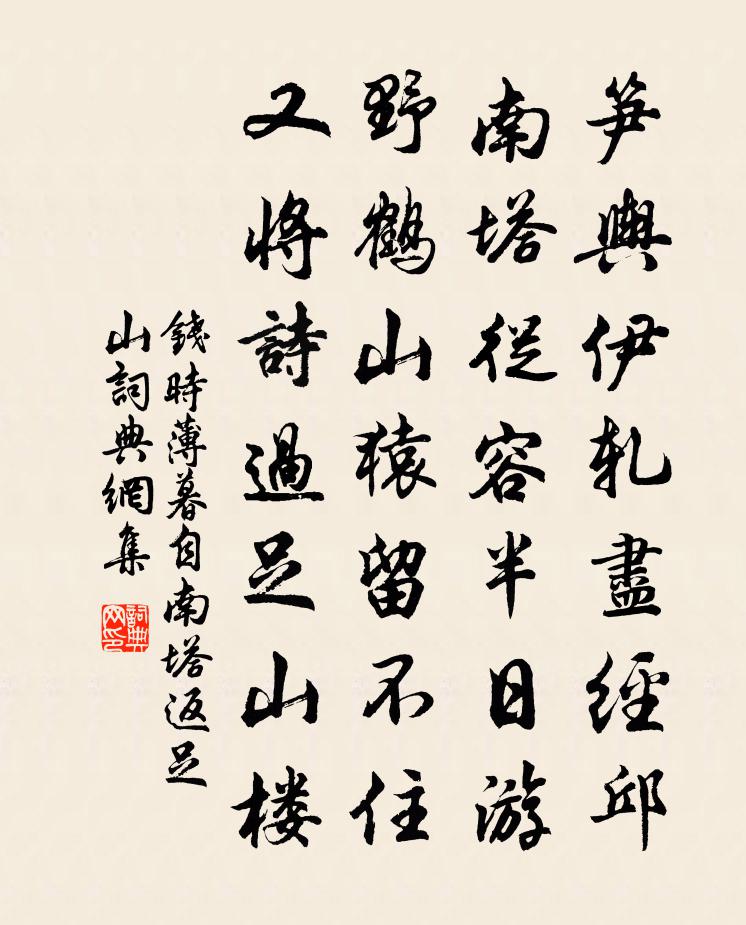 笋輿伊軋盡經邱
南塔從容半日游
野鶴山猿留不住
又將詩過足山楼
錢時薄暮自南塔返足
山詞典網集
詞典网印